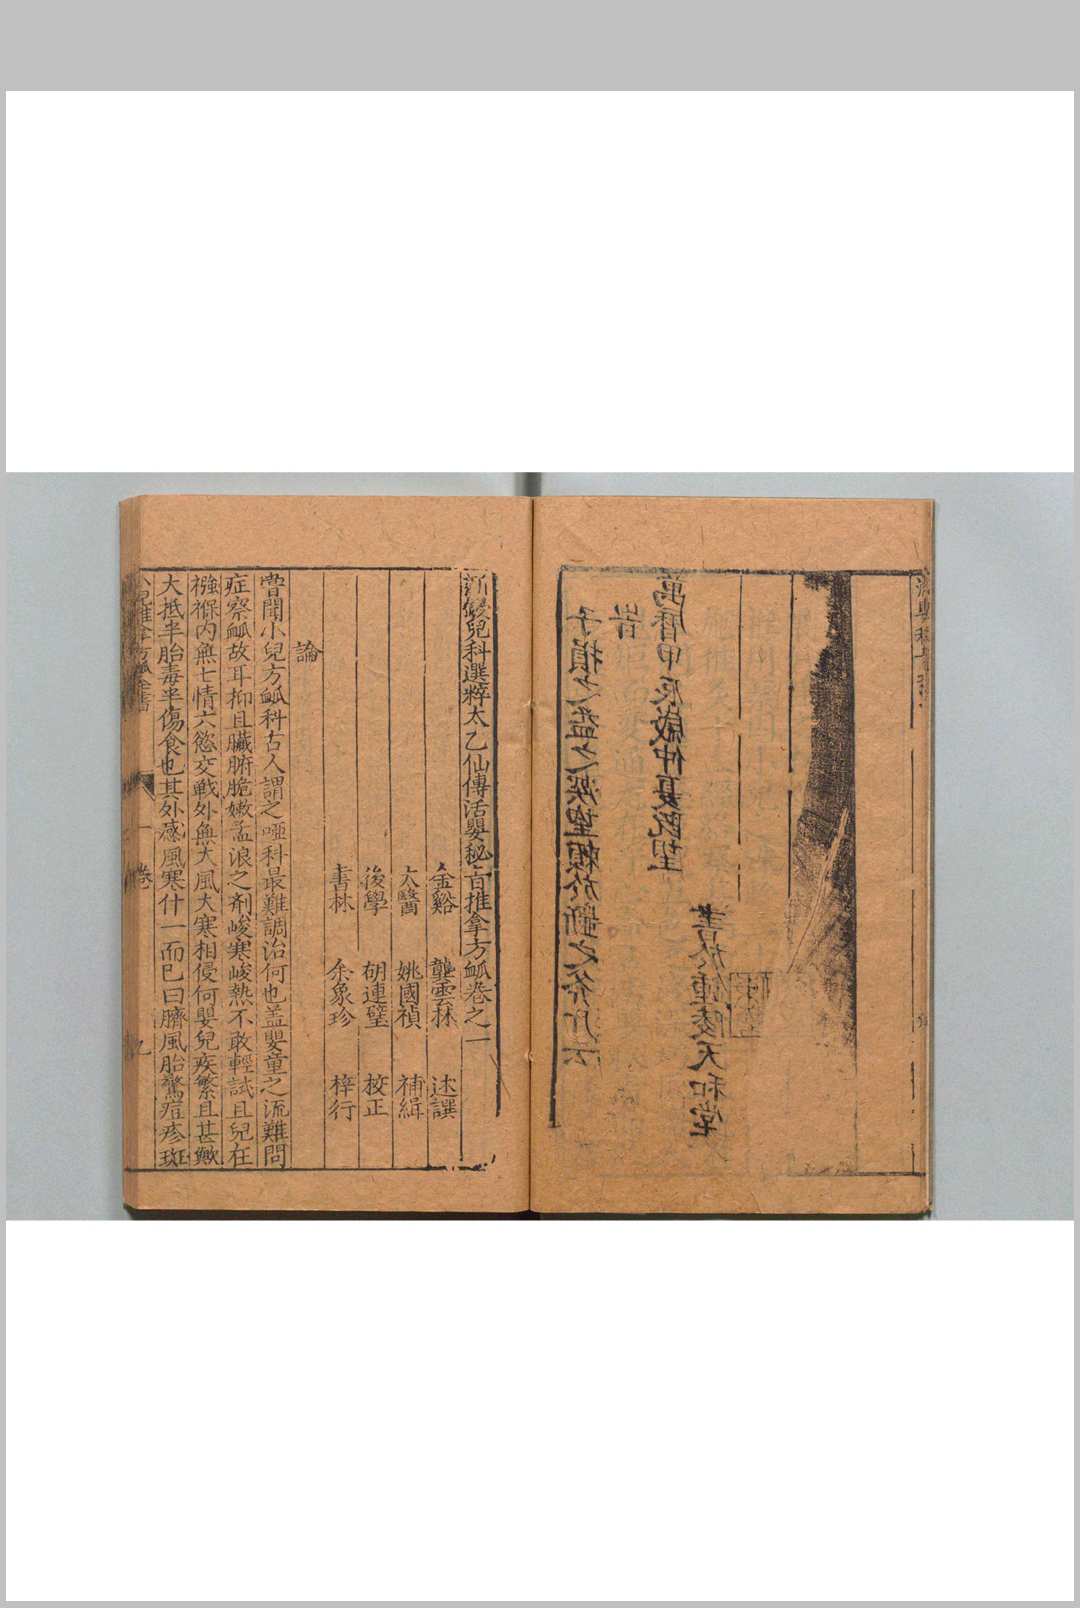 子損之益之深望賴於斲之斧斤云
萬曆甲辰歲仲夏既望
書於鍾陵天和堂
新鍥兒科選粹太乙仙傳活嬰秘旨推拿方䘑卷之一
金谿 龔雲林 述譔
太醫 姚國禎 補緝
後學 胡連璧 校正
書林 余象珍 梓行
論
嘗聞小兒方䘑科古人謂之啞科最難調治何也盖嬰童之流難問
症察䘑故耳抑且臟腑脆嫩孟浪之剤峻寒峻熱不敢輕試且兒在
襁褓内無七情六慾交戰外無大風大寒相侵何嬰兒疾繁且甚歟
大抵半胎毒半傷食也其外感風寒什一而已曰臍風胎驚痘疹斑
小兒推拿方䘑全書
一卷
九